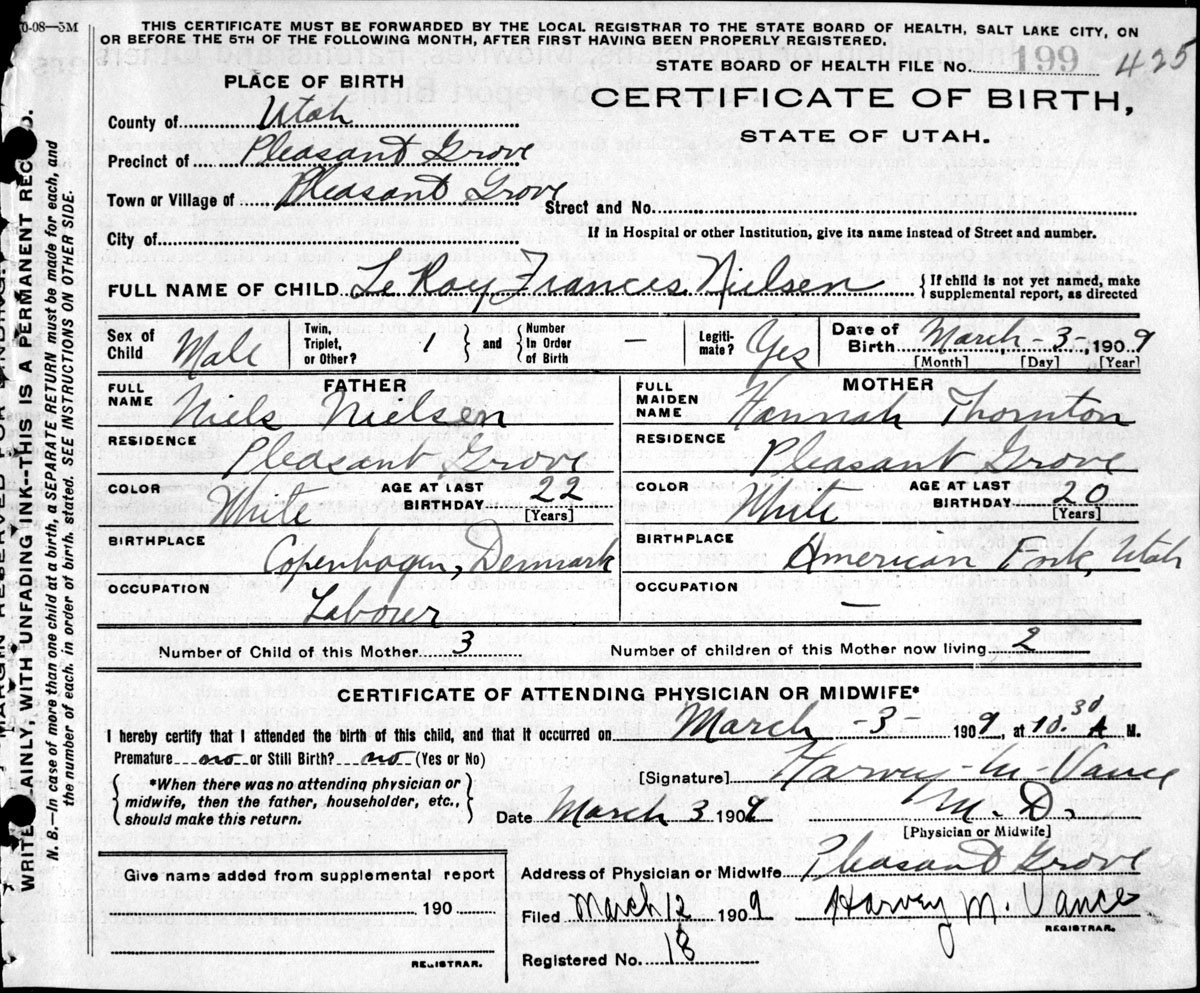 0-08—5M
THIS CERTIFICATE MUST BE FORWARDED BY THE LOCAL REGISTRAR TO THE STATE BOARD OF HEALTH, SALT LAKE CITY, ON
OR BEFORE THE 5TH OF THE FOLLOWING MONTH, AFTER FIRST HAVING BEEN PROPERLY REGISTERED.
STATE BOARD OF HEALTH FILE No. 199 425
PLACE OF BIRTH
CERTIFICATE OF BIRTH,
STATE OF UTAH.
County of Utah
Precinct of Pleasant Grove
Town or Village of Pleasant Grove Street and No.
City of
If in Hospital or other Institution, give its name instead of Street and number.
FULL NAME OF CHILD Le Roy Frances Nielsen { If child is not yet named, make
supplemental report, as directed
Sex of Child Male
Twin, Triplet, or Other? 1 } and { Number In Order of Birth —
Legiti-mate? Yes
Date of Birth March -3-, 1909
[Month] [Day] [Year]
FATHER
FULL NAME Niels Nielsen
RESIDENCE Pleasant Grove
COLOR White AGE AT LAST BIRTHDAY 22 [Years]
BIRTHPLACE Copenhagen, Denmark
OCCUPATION Laborer
MOTHER
FULL MAIDEN NAME Hannah Thornton
RESIDENCE Pleasant Grove
COLOR White AGE AT LAST BIRTHDAY 20 [Years]
BIRTHPLACE American Fork, Utah
OCCUPATION —
Number of Child of this Mother 3 Number of children of this Mother now living 2
CERTIFICATE OF ATTENDING PHYSICIAN OR MIDWIFE*
I hereby certify that I attended the birth of this child, and that it occurred on March -3- 1909, at 10.30 A M.
Premature no or Still Birth? no (Yes or No)
{ *When there was no attending physician or
midwife, then the father, householder, etc.,
should make this return. }
[Signature] Harvey M Vance
Date March 3 1909 M. D.
[Physician or Midwife]
Give name added from supplemental report
190
REGISTRAR.
Address of Physician or Midwife Pleasant Grove
Filed March 12 1909 Harvey M. Vance
REGISTRAR.
Registered No. 18
MARGIN RESERVED FOR BINDING
WRITE PLAINLY, WITH UNFADING INK--THIS IS A PERMANENT RECORD.
N. B.—In case of more than one child at a birth, a SEPARATE RETURN must be made for each, and
the number of each, in order of birth, stated. SEE INSTRUCTIONS ON OTHER SIDE.